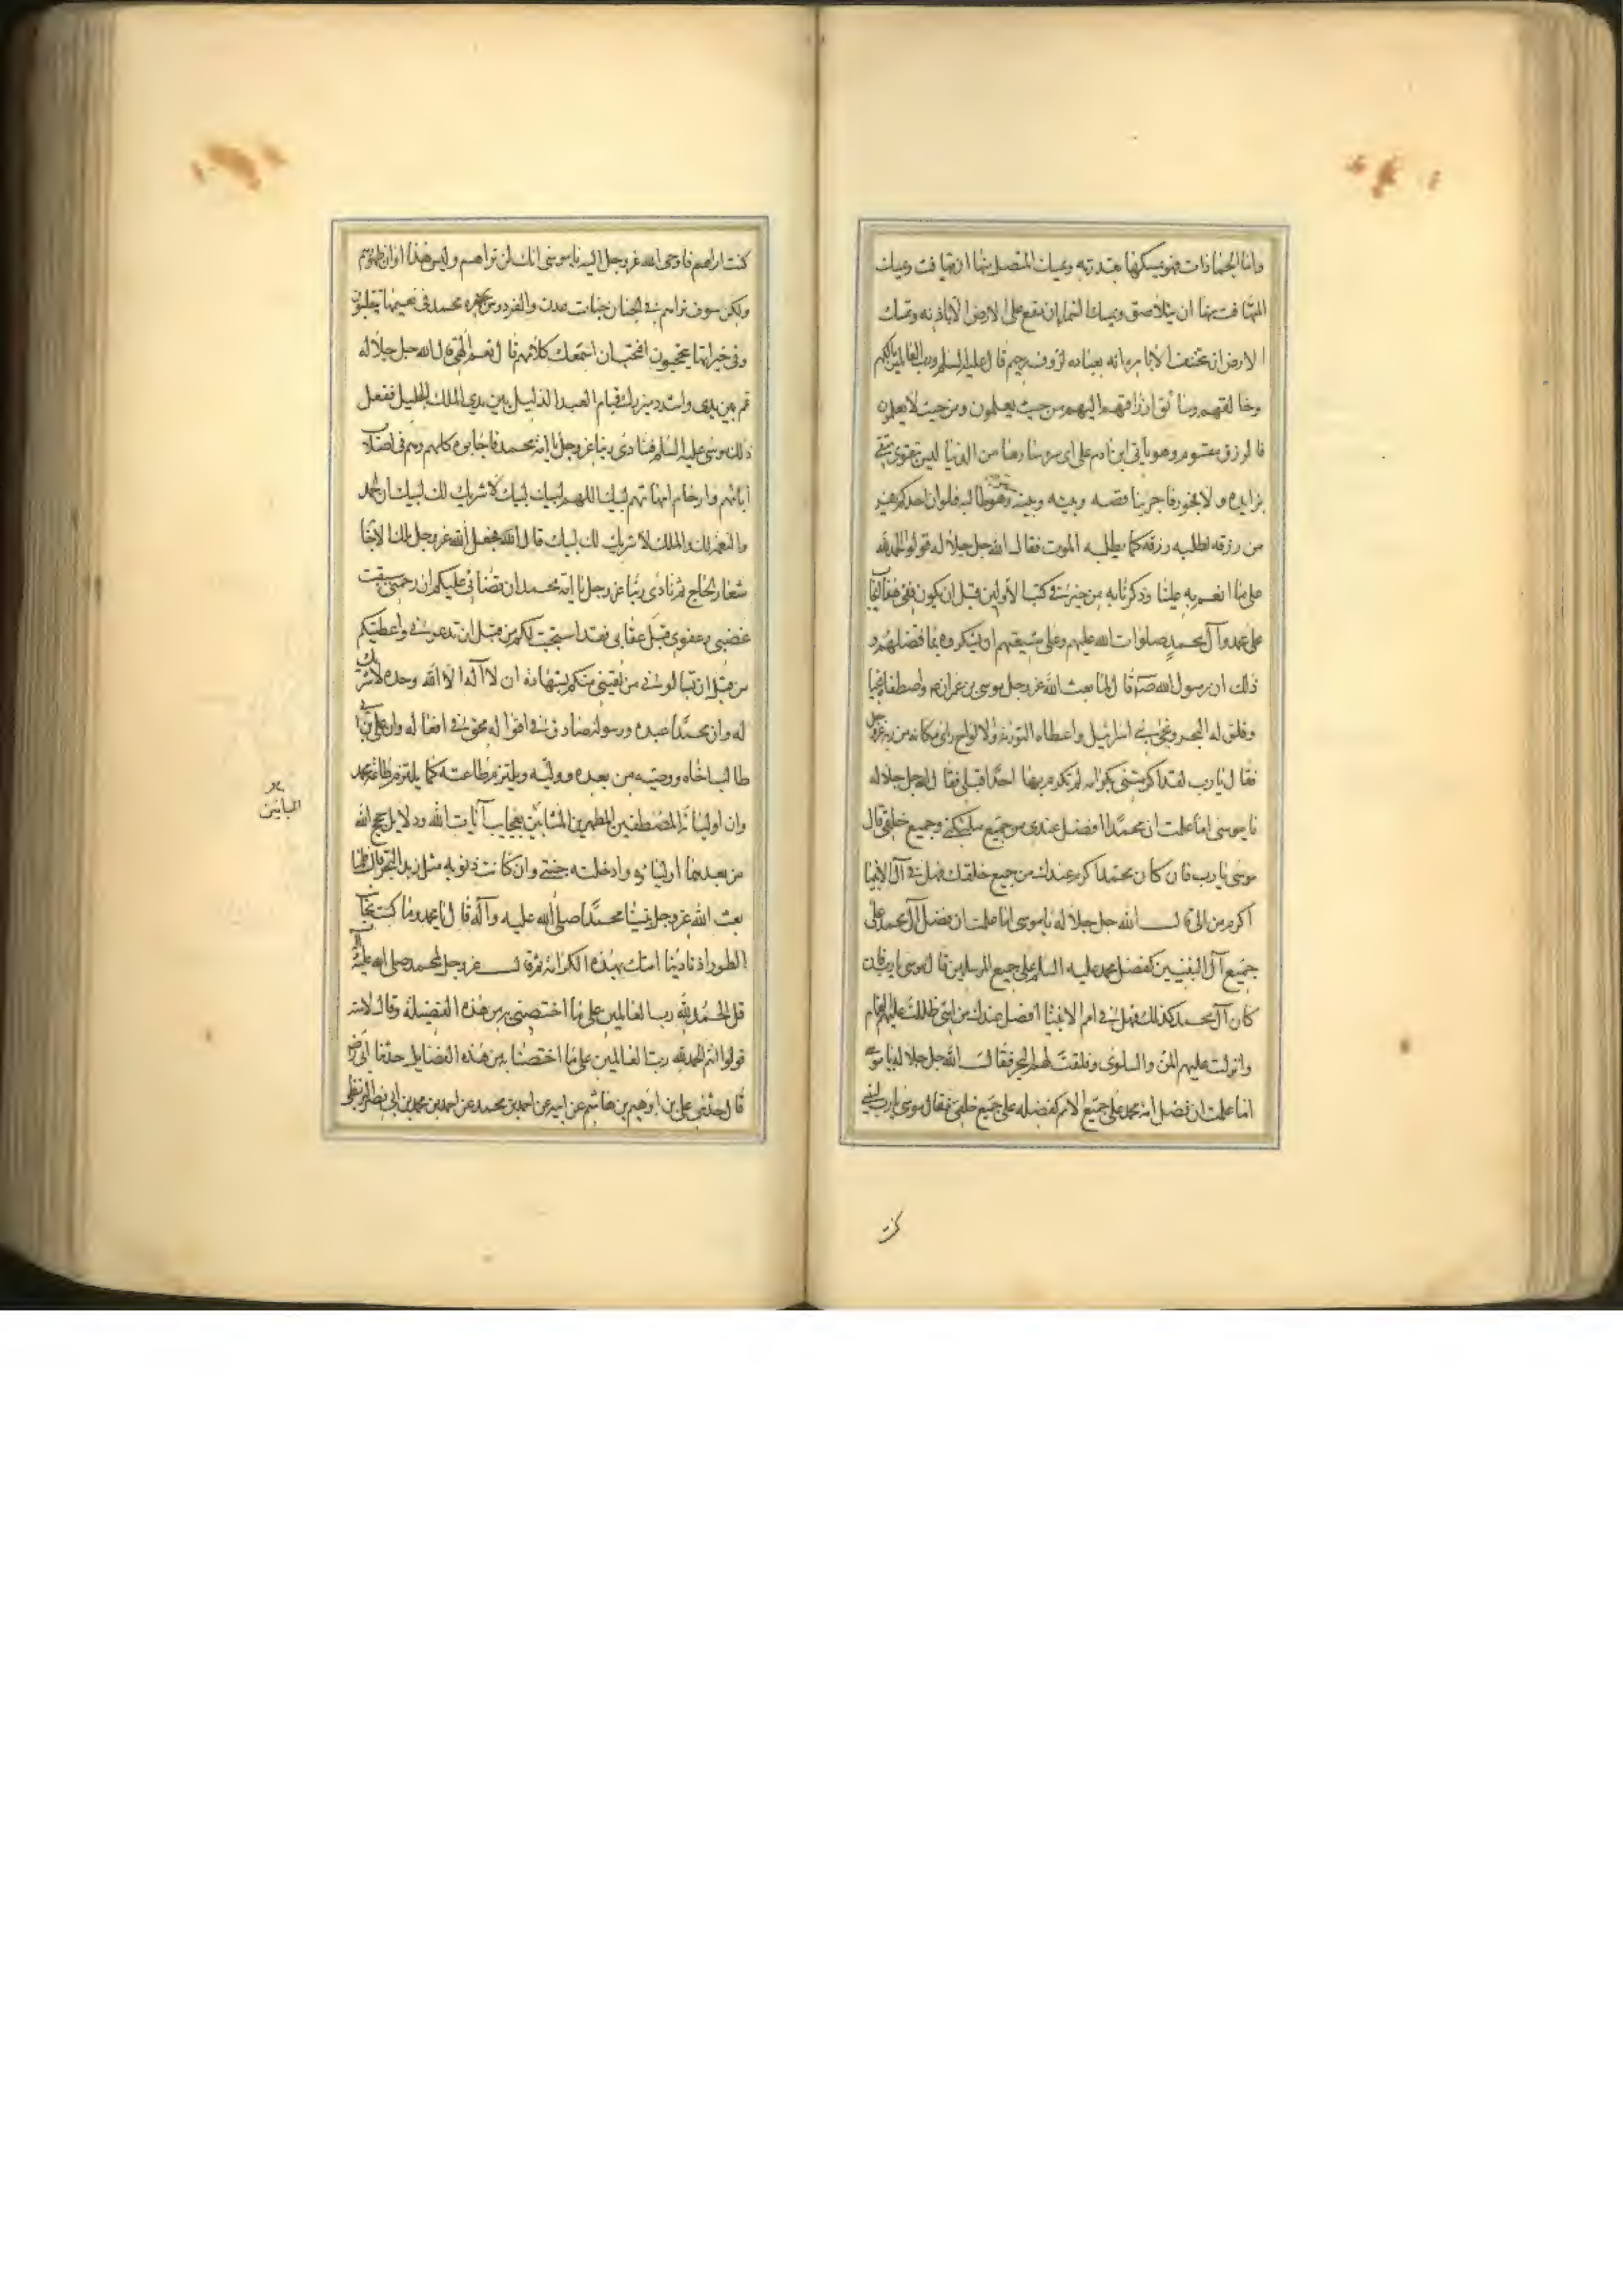 واما الجمادات فهو يمسكها بقدرته ويمسك المتصل منها ان يتهافت ويمسك
المتهافت منها ان يتلاصق ويمسك السماء ان تقع على الارض الا باذنه ويمسك
الارض ان تنخسف الا بامره انه بعباده لرؤوف رحيم قال عليه السلم ورب العالمين مالكهم
وخالقهم وسائق ارزاقهم اليهم من حيث يعلمون ومن حيث لا يعلمون
فالرزق مقسوم وهو ياتى ابن ادم على اى سيرة سارها من الدنيا ليس تقوى متقى
بزايده ولا فجور فاجر بناقصه وبينه وبينه ستر وهو طالبه فلو ان احدكم يفر
من رزقه لطلبه رزقه كما يطلبه الموت فقال الله جل جلاله قولوا الحمد لله
على ما انعم به علينا وذكرنا به من خير فى كتب الاولين قبل ان نكون ففى هذا ايجاب
على محمد وآل محمد صلوات الله عليهم وعلى شيعتهم ان يشكروه بما فضلهم و
ذلك ان رسول الله ص قال لما بعث الله عز وجل موسى بن عمران واصطفاه نجيا
وفلق له البحر ونجى بنى اسرائيل واعطاه التورية والالواح راى مكانه من ربه عز وجل
فقال يا رب لقد اكرمتنى بكرامة لم تكرم بها احدا قبلى فقال الله جل جلاله
يا موسى اما علمت ان محمدا افضل عندى من جميع ملئكتى وجميع خلقى قال
موسى يا رب فان كان محمد اكرم عندك من جميع خلقك فهل فى آل الانبيا
اكرم من الى قال الله جل جلاله يا موسى اما علمت ان فضل آل محمد على
جميع آل النبيين كفضل محمد عليه السلم على جميع المرسلين قال موسى يا رب فان
كان آل محمد كذلك فهل فى امم الانبيا افضل عندك من امتى ظللت عليهم الغمام
وانزلت عليهم المن والسلوى وفلقت لهم البحر فقال الله جل جلاله يا موسى
اما علمت ان فضل امة محمد على جميع الامم كفضله على جميع خلقى فقال موسى يا رب ليتنى
كنت
كنت اراهم فاوحى الله عز وجل اليه يا موسى انك لن تراهم وليس هذا اوان ظهورهم
ولكن سوف تراهم فى الجنان جنات عدن والفردوس بحضرة محمد فى نعيمها يتقلبون
وفى خيراتها يتبحبحون افتحب ان اسمعك كلامهم قال نعم الهى قال الله جل جلاله
قم بين يدى واشدد ميزرك قيام العبد الذليل بين يدى الملك الجليل ففعل
ذلك موسى عليه السلم فنادى ربنا عز وجل يا امة محمد فاجابوه كلهم وهم فى اصلاب
آبائهم وارحام امهاتهم لبيك اللهم لبيك لبيك لا شريك لك لبيك ان الحمد
والنعمة لك والملك لا شريك لك لبيك قال فجعل الله عز وجل تلك الاجابة
شعار الحاج ثم نادى ربنا عز وجل يا امة محمد ان قضائى عليكم ان رحمتى سبقت
غضبى وعفوى قبل عقابى فقد استجبت لكم من قبل ان تدعونى واعطيتكم
من قبل ان تسالونى من لقينى منكم بشهادة ان لا اله الا الله وحده لا شريك
له وان محمدا عبده ورسوله صادق فى اقواله محق فى افعاله وان على بن ابى
طالب اخاه ووصيه من بعده ووليه ويلتزم طاعته كما يلتزم طاعة محمد
وان اوليائه المصطفين المطهرين المباينين بعجايب آيات الله ودلايل حجج الله
من بعدهما اوليائه وادخلته جنتى وان كانت ذنوبه مثل زبد البحر قال فلما
بعث الله عز وجل نبينا محمدا صلى الله عليه وآله قال يا محمد وما كنت بجانب
الطور اذ نادينا امتك بهذه الكرامة ثم قال عز وجل لمحمد صلى الله عليه وآله
قل الحمد لله رب العالمين على ما اختصنى به من هذه الفضيلة وقال لامته
قولوا انتم الحمد لله رب العالمين على ما اختصنا به من هذه الفضايل حدثنا ابى رضى
قال حدثنى على بن ابرهيم بن هاشم عن ابيه عن احمد بن محمد عن احمد بن محمد بن ابى نصر البزنطى
المباينين